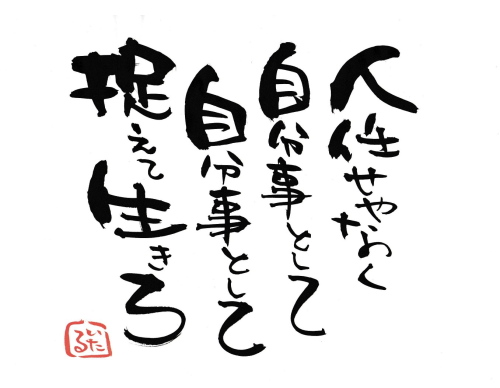 人任せやなく
自分事として
自分事として
捉えて生きろ
いたる